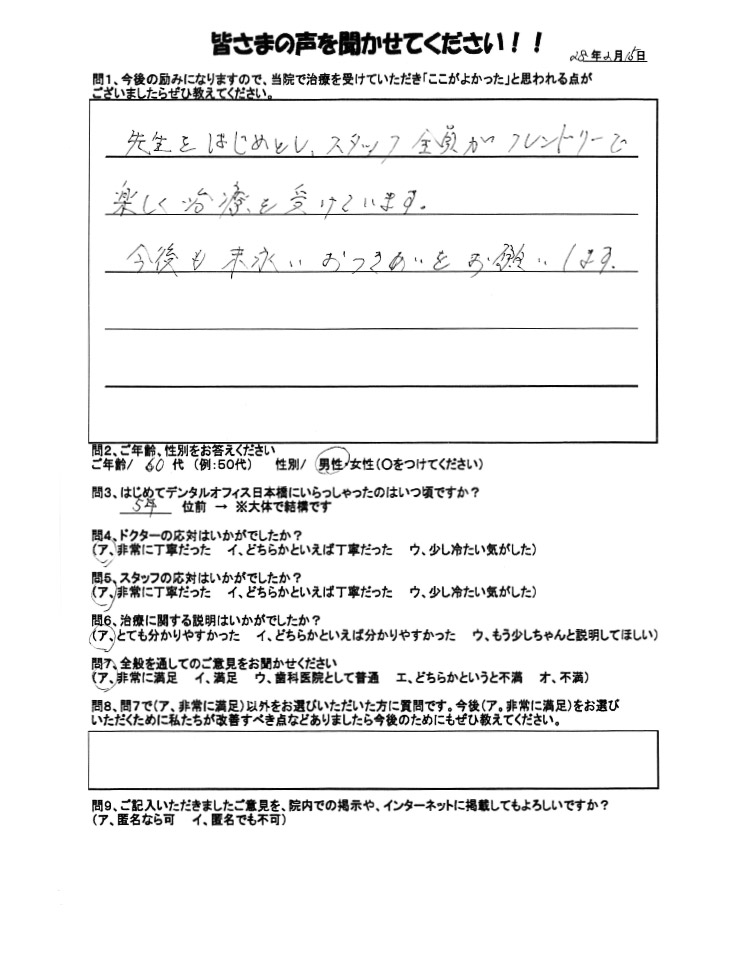 皆さまの声を聞かせてください！！
28年2月15日
問1、今後の励みになりますので、当院で治療を受けていただき「ここがよかった」と思われる点が
ございましたらぜひ教えてください。
先生をはじめとし、スタッフ全員がフレンドリーで
楽しく治療を受けています。
今後も末永いおつきあいをお願いします.
問2、ご年齢、性別をお答えください
ご年齢/ 60 代 (例:50代) 性別/ 男性・女性(○をつけてください)
問3、はじめてデンタルオフィス日本橋にいらっしゃったのはいつ頃ですか？
5年 位前 → ※大体で結構です
問4、ドクターの応対はいかがでしたか？
(ア、非常に丁寧だった イ、どちらかといえば丁寧だった ウ、少し冷たい気がした)
問5、スタッフの応対はいかがでしたか？
(ア、非常に丁寧だった イ、どちらかといえば丁寧だった ウ、少し冷たい気がした)
問6、治療に関する説明はいかがでしたか？
(ア、とても分かりやすかった イ、どちらかといえば分かりやすかった ウ、もう少しちゃんと説明してほしい)
問7、全般を通してのご意見をお聞かせください
(ア、非常に満足 イ、満足 ウ、歯科医院として普通 エ、どちらかというと不満 オ、不満)
問8、問7で(ア、非常に満足)以外をお選びいただいた方に質問です。今後(ア。非常に満足)をお選び
いただくために私たちが改善すべき点などありましたら今後のためにもぜひ教えてください。
問9、ご記入いただきましたご意見を、院内での掲示や、インターネットに掲載してもよろしいですか？
(ア、匿名なら可 イ、匿名でも不可)